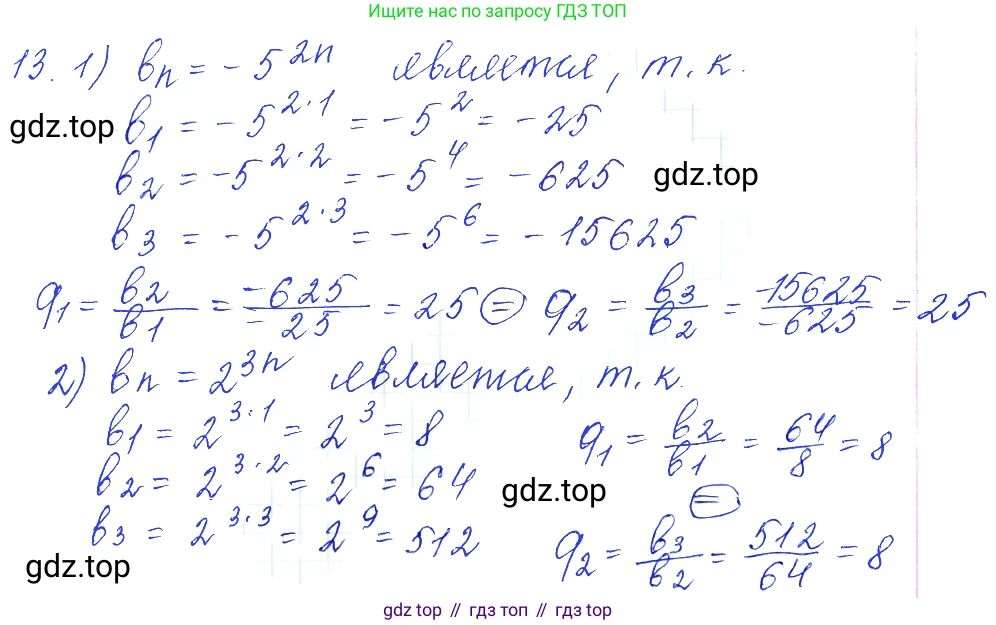 Ищите нас по запросу ГДЗ ТОП
13. 1) bₙ = -5²ⁿ является, т.к.
gdz.top b₁ = -5²·¹ = -5² = -25
b₂ = -5²·² = -5⁴ = -625 gdz.top
b₃ = -5²·³ = -5⁶ = -15625
q₁ = b₂/b₁ = -625/-25 = 25 = q₂ = b₃/b₂ = -15625/-625 = 25
2) bₙ = 2³ⁿ является, т.к.
b₁ = 2³·¹ = 2³ = 8 q₁ = b₂/b₁ = 64/8 = 8
b₂ = 2³·² = 2⁶ = 64 gdz.top =
b₃ = 2³·³ = 2⁹ = 512 q₂ = b₃/b₂ = 512/64 = 8
gdz.top
gdz.top // гдз топ // гдз.top